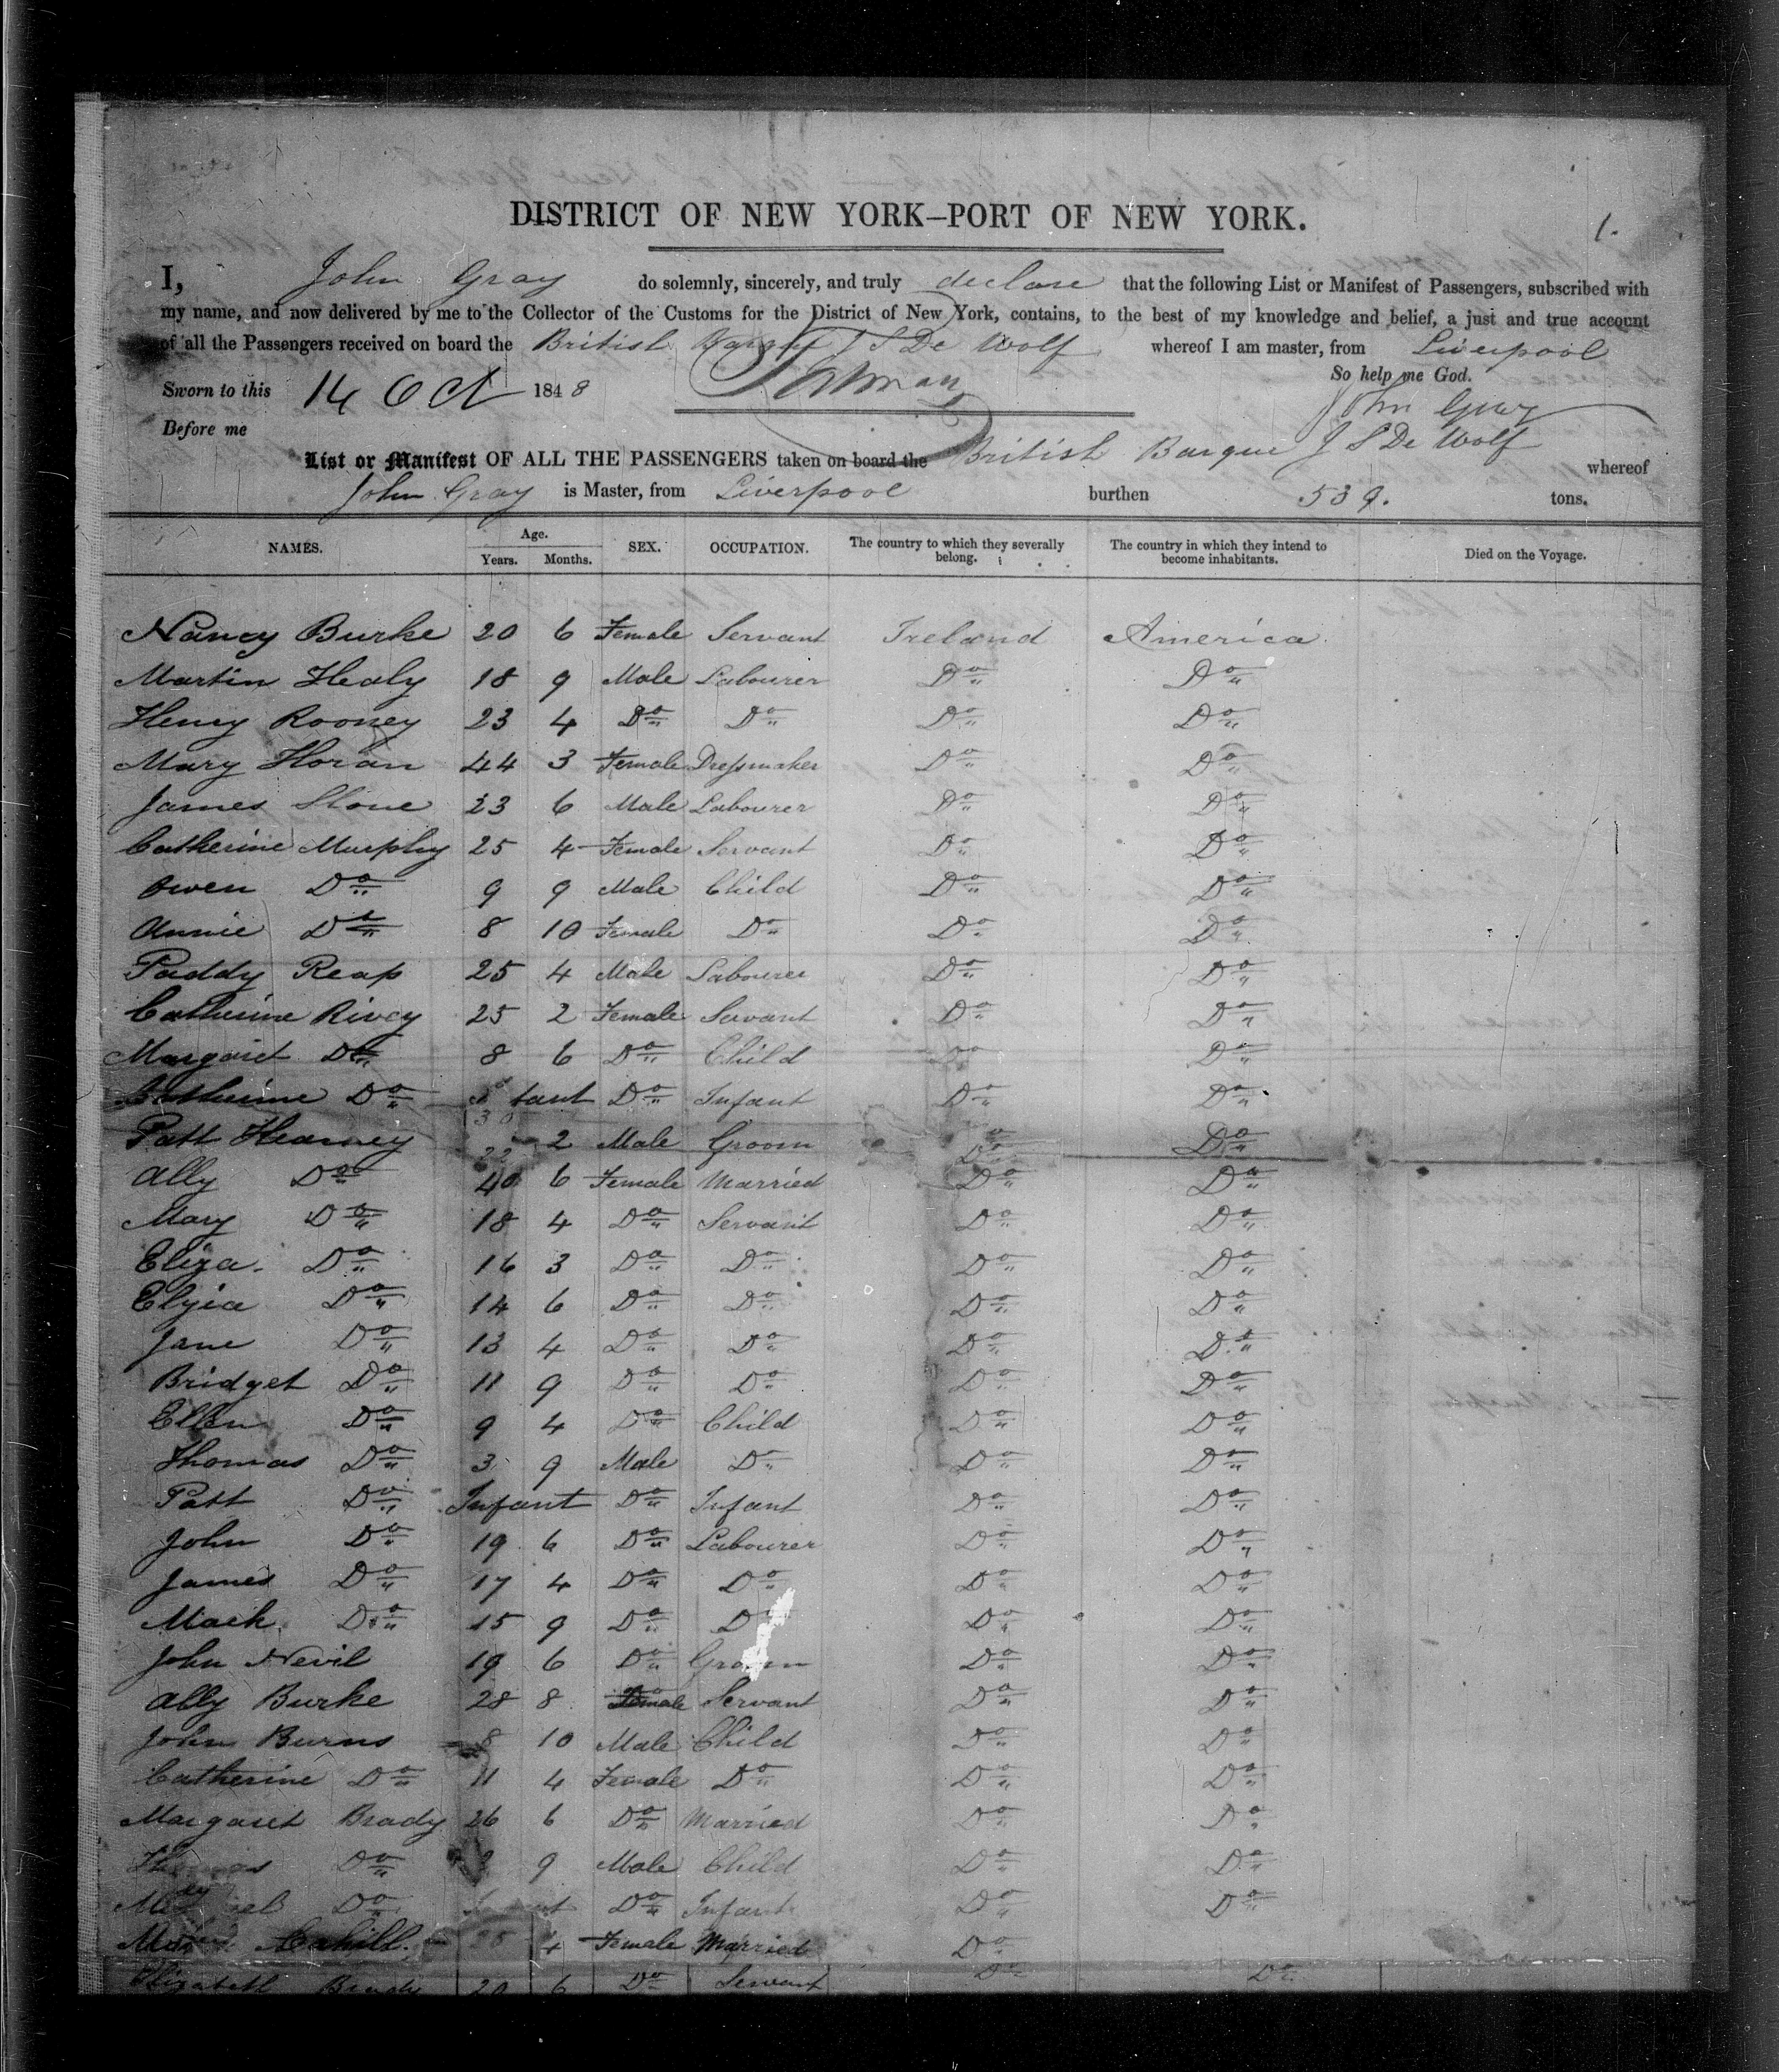 1.
DISTRICT OF NEW YORK–PORT OF NEW YORK.
I, John Gray do solemnly, sincerely, and truly declare that the following List or Manifest of Passengers, subscribed with
my name, and now delivered by me to the Collector of the Customs for the District of New York, contains, to the best of my knowledge and belief, a just and true account
of all the Passengers received on board the British Barque J S De Wolf whereof I am master, from Liverpool
So help me God.
Sworn to this 14 Oct 1848
John Gray
Before me
List or Manifest OF ALL THE PASSENGERS taken on board the British Barque J S De Wolf whereof
John Gray is Master, from Liverpool burthen 539. tons.
NAMES. Age. Years. Months. SEX. OCCUPATION. The country to which they severally belong. The country in which they intend to become inhabitants. Died on the Voyage.
Nancy Burke 20 6 Female Servant Ireland America
Martin Healy 18 9 Male Labourer Do Do
Henry Rooney 23 4 Do Do Do Do
Mary Horan 44 3 Female Dressmaker Do Do
James Slone 23 6 Male Labourer Do Do
Catherine Murphy 25 4 Female Servant Do Do
Owen Do 9 9 Male Child Do Do
Annie Do 8 10 Female Do Do Do
Paddy Reap 25 4 Male Labourer Do Do
Catherine Rivey 25 2 Female Servant Do Do
Margaret Do 8 6 Do Child Do Do
Catherine Do Do Infant Do Do
Patt Kearney 2 Male Groom Do Do
Ally Do 40 6 Female Married Do Do
Mary Do 18 4 Do Servant Do Do
Eliza Do 16 3 Do Do Do Do
Elyia Do 14 6 Do Do Do Do
Jane Do 13 4 Do Do Do Do
Bridget Do 11 9 Do Do Do Do
Ellen Do 9 4 Do Child Do Do
Thomas Do 3 9 Male Do Do Do
Patt Do Infant Do Infant Do Do
John Do 19 6 Do Labourer Do Do
James Do 17 4 Do Do Do Do
Mack Do 15 9 Do Do Do Do
John Nevil 19 6 Do Groom Do Do
Ally Burke 28 8 Female Servant Do Do
John Burns 8 10 Male Child Do Do
Catherine Do 11 4 Female Do Do Do
Margaret Brady 26 6 Do Married Do Do
Thomas Do 9 Male Child Do Do
Do Do Infant Do Do
Cahill 4 Female Married Do
Elizabeth Brady 20 6 Do Servant Do Do